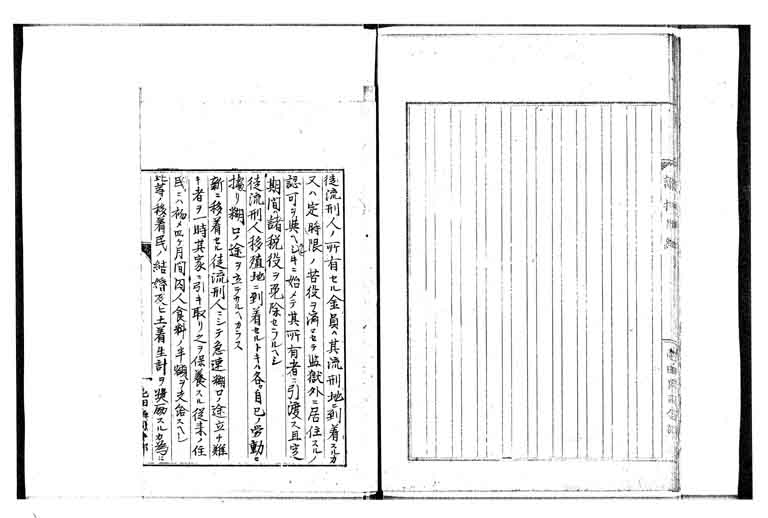 徒流刑人ノ所有セル金員ハ其流刑地ニ到着スルカ
又ハ定時限ノ苦役ヲ済マセテ監獄外ニ居住スルノ
認可ヲ與ヘシキニ始メテ其所有者ニ引渡ス且定
期間諸税役ヲ免除セラルヘシ
徒流刑人移殖地ニ到着セルトキハ各自己ノ労動ニ
據リ糊口ノ途ヲ立テサルヘカラス
新ニ移着セル徒流刑人ニシテ急速糊口ノ途立チ難
キ者ヲ一時其家ニ引キ取リ之ヲ保養スル従来ノ住
民ニハ初メ四ケ月間囚人食料ノ半額ヲ支給スヘシ
此等ノ移着民ノ結婚及ヒ土着生計ヲ奨励スルカ為ニ